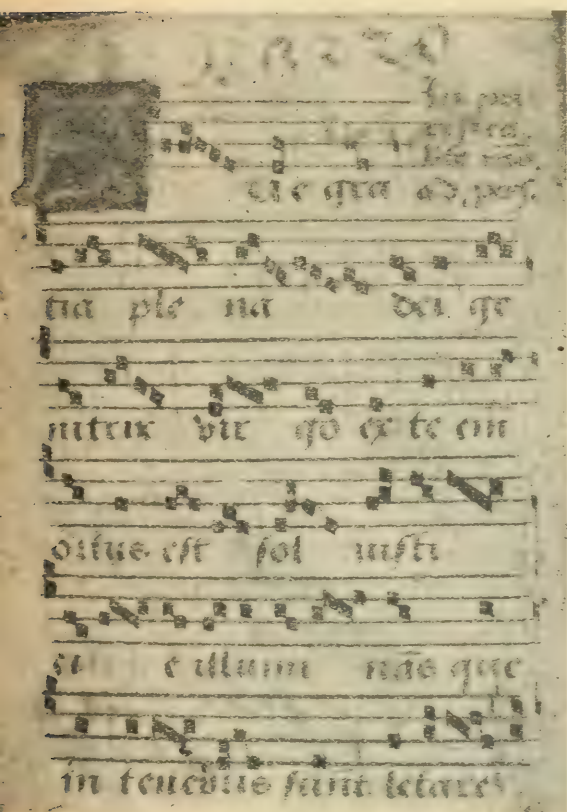 In pu
rifica
ue gra
tia ple na dei ge
nitrix vir go ex te em
ortus est sol iusti
e illumi nās que
in tenebris sunt letare